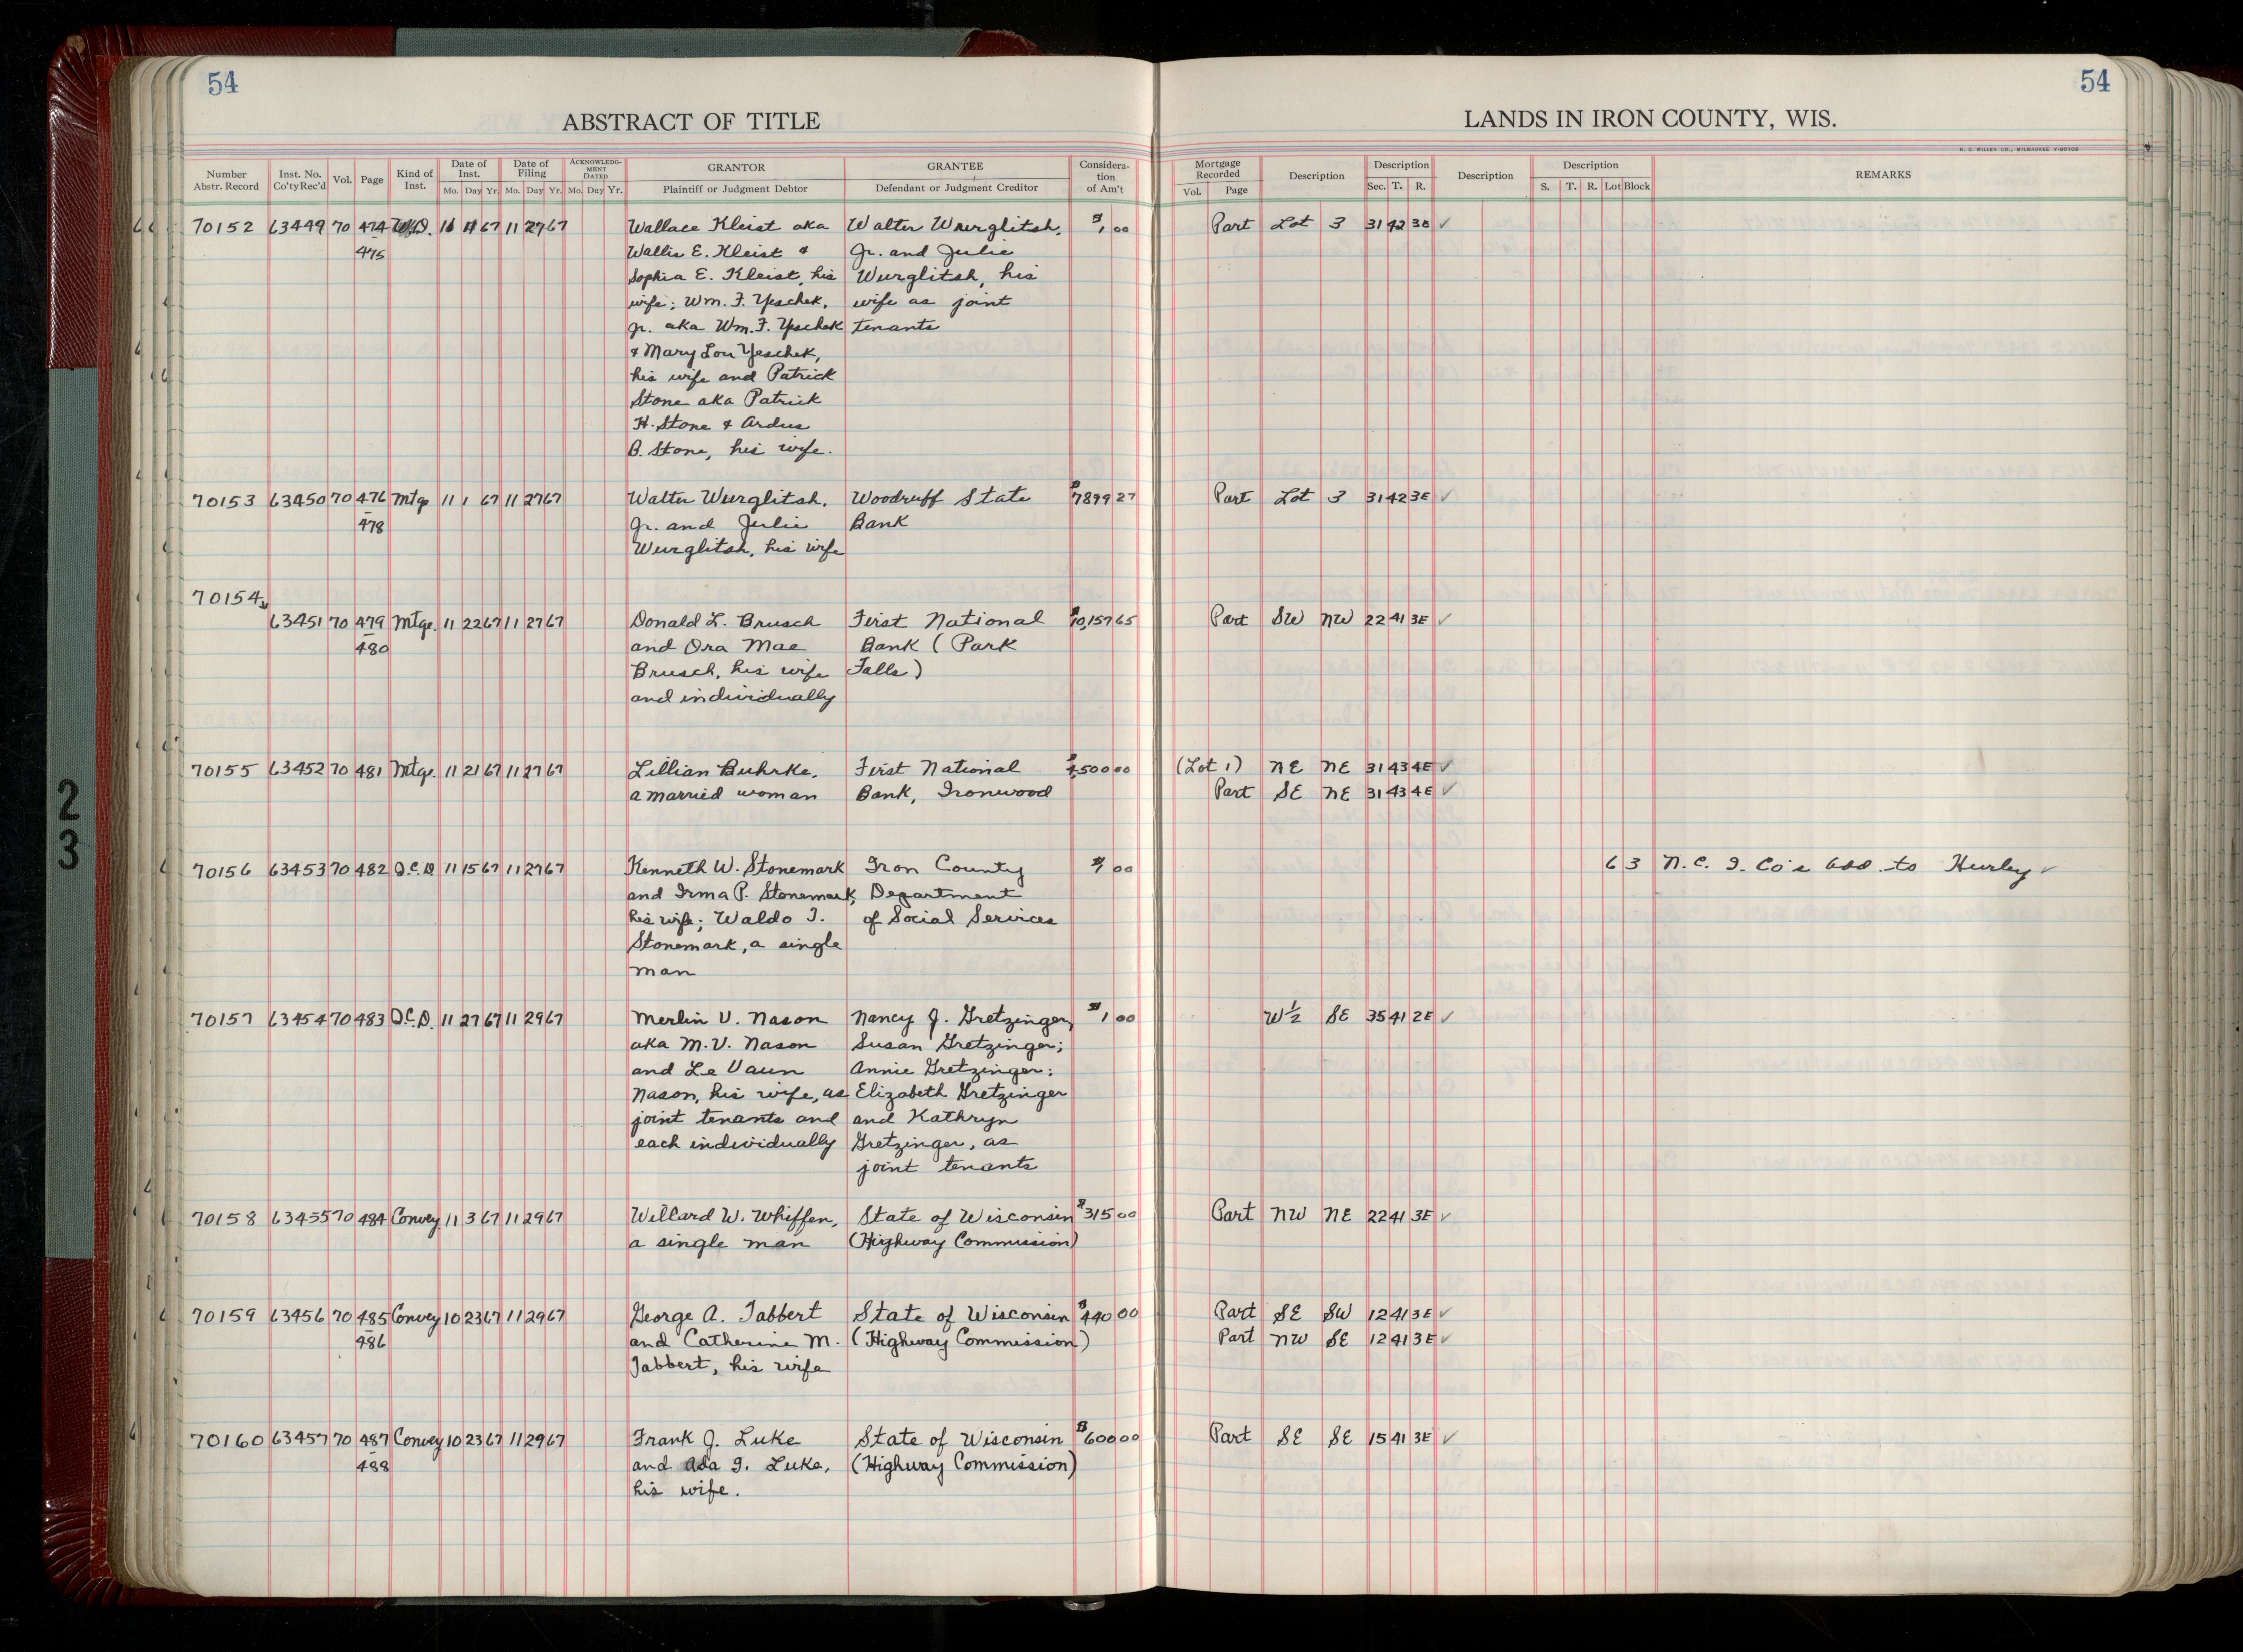 54
54
ABSTRACT OF TITLE
LANDS IN IRON COUNTY, WIS.
H. C. MILLER CO., MILWAUKEE V-90109
Number Abstr. Record | Inst. No. Co'ty Rec'd | Vol. | Page | Kind of Inst. | Date of Inst. Mo. Day Yr. | Date of Filing Mo. Day Yr. | ACKNOWLEDG-MENT DATED Mo. Day Yr. | GRANTOR Plaintiff or Judgment Debtor | GRANTEE Defendant or Judgment Creditor | Considera-tion of Am't | Mortgage Recorded Vol. Page | Description | Description Sec. T. R. | Description | Description S. T. R. Lot Block | REMARKS
70152 63449 70 474 W.D. 11 67 11 27 67 Wallace Kleist aka Walter Wurglitsh, $1 00 Part Lot 3 31 42 3E ✓
475 Wallis E. Kleist & Jr. and Julie
Sophia E. Kleist, his Wurglitsh, his
wife; Wm. F. Yeschek, wife as joint
Jr. aka Wm. F. Yeschek tenants
& Mary Lou Yeschek,
his wife and Patrick
Stone aka Patrick
H. Stone & Ardus
B. Stone, his wife.
70153 63450 70 476 Mtge 11 1 67 11 27 67 Walter Wurglitsh, Woodruff State $7899 27 Part Lot 3 31 42 3E ✓
478 Jr. and Julie Bank
Wurglitsh, his wife
70154
63451 70 479 Mtge. 11 22 67 11 27 67 Donald L. Brusch First National $10,157 65 Part SW NW 22 41 3E ✓
480 and Ora Mae Bank (Park
Brusch, his wife Falls)
and individually
70155 63452 70 481 Mtge. 11 21 67 11 27 67 Lillian Buhrke, First National 500 00 (Lot 1) NE NE 31 43 4E ✓
a married woman Bank, Ironwood Part SE NE 31 43 4E ✓
70156 63453 70 482 Q.C.D. 11 15 67 11 27 67 Kenneth W. Stonemark Iron County $1 00 6 3 N. C. I. Co's Add. to Hurley ✓
and Irma P. Stonemark, Department
his wife; Waldo I. of Social Services
Stonemark, a single
man
70157 63454 70 483 Q.C.D. 11 27 67 11 29 67 Merlin V. Nason Nancy J. Gretzinger, $1 00 W½ SE 35 41 2E ✓
aka M.V. Nason Susan Gretzinger;
and Le Vaun Annie Gretzinger;
Nason, his wife, as Elizabeth Gretzinger
joint tenants and and Kathryn
each individually Gretzinger, as
joint tenants
70158 63455 70 484 Convey. 11 3 67 11 29 67 Willard W. Whiffen, State of Wisconsin $315 00 Part NW NE 22 41 3E ✓
a single man (Highway Commission)
70159 63456 70 485 Convey 10 23 67 11 29 67 George A. Tabbert State of Wisconsin $440 00 Part SE SW 12 41 3E ✓
486 and Catherine M. (Highway Commission) Part NW SE 12 41 3E ✓
Tabbert, his wife
70160 63457 70 487 Convey 10 23 67 11 29 67 Frank J. Luke State of Wisconsin $600 00 Part SE SE 15 41 3E ✓
488 and Ada I. Luke, (Highway Commission)
his wife.
2
3